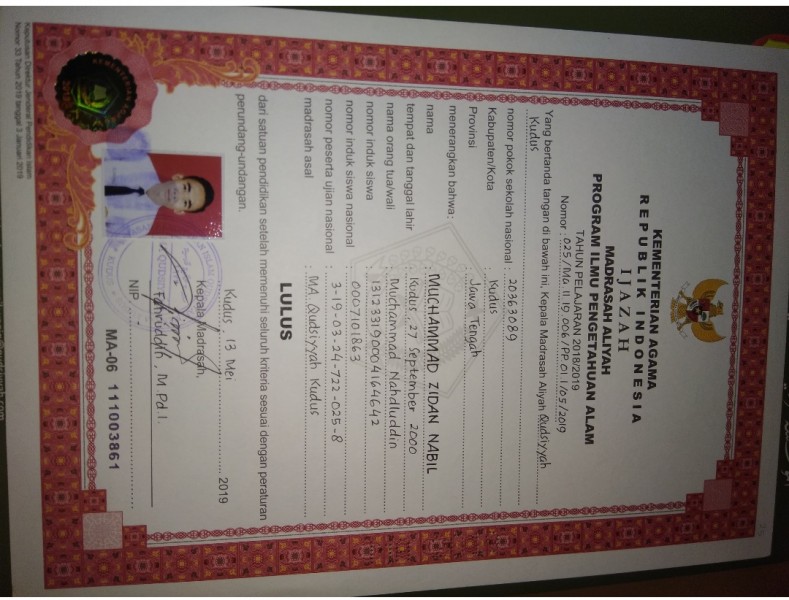 KEMENTERIAN AGAMA
REPUBLIK INDONESIA
IJAZAH
MADRASAH ALIYAH
PROGRAM ILMU PENGETAHUAN ALAM
TAHUN PELAJARAN 2018/2019
Nomor : 025/Ma.11.19.006/PP.01.1/05/2019
Yang bertanda tangan di bawah ini, Kepala Madrasah Aliyah Qudsiyyah
Kudus
nomor pokok sekolah nasional : 20363089
Kabupaten/Kota : Kudus
Provinsi : Jawa Tengah
menerangkan bahwa:
nama : MUCHAMMAD ZIDAN NABIL
tempat dan tanggal lahir : Kudus, 27 September 2000
nama orang tua/wali : Muchammad Nahdluddin
nomor induk siswa : 131233190004164642
nomor induk siswa nasional : 0007101863
nomor peserta ujian nasional : 3-19-03-24-722-025-8
madrasah asal : MA Qudsiyyah Kudus
LULUS
dari satuan pendidikan setelah memenuhi seluruh kriteria sesuai dengan peraturan
perundang-undangan.
Kudus, 13 Mei 2019
Kepala Madrasah,
Fahruddin, M.Pd.I.
NIP.
MA-06 111003861
Keputusan Direktur Jenderal Pendidikan Islam
Nomor 33 Tahun 2019 tanggal 3 Januari 2019